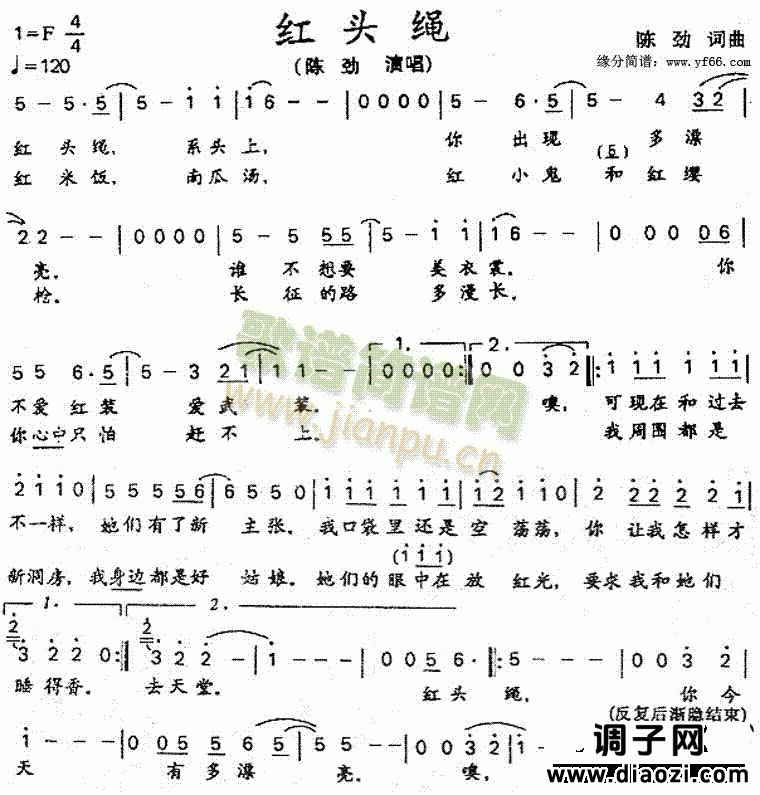 红头绳
1=F 4/4
♩=120
(陈劲 演唱)
陈劲 词曲
缘分简谱：www.yf66.com
5 - 5·5 | 5 - i i | i 6 - - | 0 0 0 0 | 5 - 6·5 | 5 - 4 3 2 |
红头绳，系头上， 你出现多漂
(5)
红米饭，南瓜汤， 红小鬼和红缨
2 2 - - | 0 0 0 0 | 5 - 5 5 5 | 5 - i i | i 6 - - | 0 0 0 0 6 |
亮。 谁不想要美衣裳。 你
枪。 长征的路多漫长，
1. 2.
5 5 6·5 | 5 - 3 2 1 | 1 1 - - | 0 0 0 0 :| 0 0 3 2 |: i i i i i i |
不爱红装爱武装。 噢，可现在和过去
你心中只怕赶不上。 我周围都是
歌谱简谱网
www.jianpu.cn
2 i i 0 | 5 5 5 5 6 | 6 5 5 0 | i i i i i i | i 2 i 0 | 2 2 2 2 i |
不一样，她们有了新主张。我口袋里还是空荡荡，你让我怎样才
(i i i)
新洞房，我身边都是好姑娘。她们的眼中在放红光，要求我和她们
1. 2.
2 2
3 2 2 0 :| 3 2 2 - | i - - - | 0 0 5 6· |: 5 - - - | 0 0 3 2 |
睡得香。去天堂。 红头绳， 你今
(反复后渐隐结束)
i - - - | 0 0 5 5 6 | 5 5 - - | 0 0 3 2 | i -
天 有多漂亮。噢，
调子网
www.diaozi.com